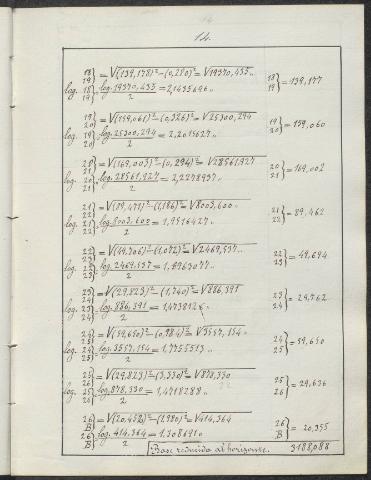 14.
18/19} = √(139,178)²-(0,280)² = √19370,435 "
log. 18/19} = log. 19370,435/2 = 2,1435696 "
18/19} = 139,177
19/20} = √(159,061)²-(0,326)² = √25300,294
log. 19/20} = log. 25300,294/2 = 2,2015627 "
19/20} = 159,060
20/21} = √(169,003)²-(0,294)² = √28561,927
log. 20/21} = log. 28561,927/2 = 2,2278937 "
20/21} = 169,002
21/22} = √(89,471)²-(1,186)² = √8003,600 "
log. 21/22} = log. 8003,600/2 = 1,9516427 "
21/22} = 89,462
22/23} = √(49,706)²-(1,072)² = √2469,537 "
log. 22/23} = log. 2469,537/2 = 1,6963077 "
22/23} = 49,694
23/24} = √(29,823)²-(1,740)² = √886,391
log. 23/24} = log. 886,391/2 = 1,473812
23/24} = 29,762
24/25} = √(59,650)²-(0,984)² = √3557,154 "
log. 24/25} = log. 3557,154/2 = 1,7755513 "
24/25} = 59,650
25/26} = √(29,823)²-(3,330)² = √878,330
log. 25/26} = log. 878,330/2 = 1,4718288 "
25/26} = 29,636
26/B} = √(20,458)²-(1,980)² = √414,364
log. 26/B} = log. 414,364/2 = 1,308691
26/B} = 20,355
Base reducida al horizonte. 3188,088